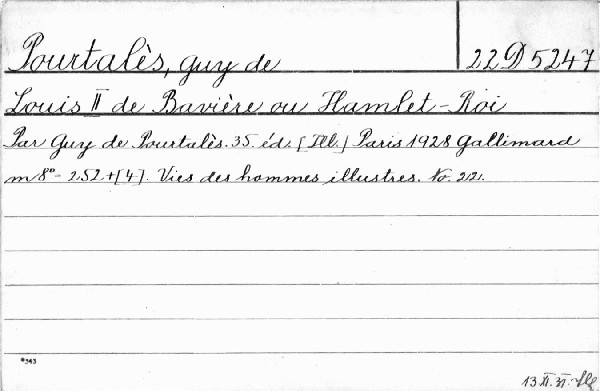 Pourtalès, Guy de
22D5247
Louis II de Bavière ou Hamlet-Roi
Par Guy de Pourtalès. 35. éd. [Ill.] Paris 1928 Gallimard
m 8° - 252+[4]. Vies des hommes illustres. No. 221.
*343
13 XI. 31.